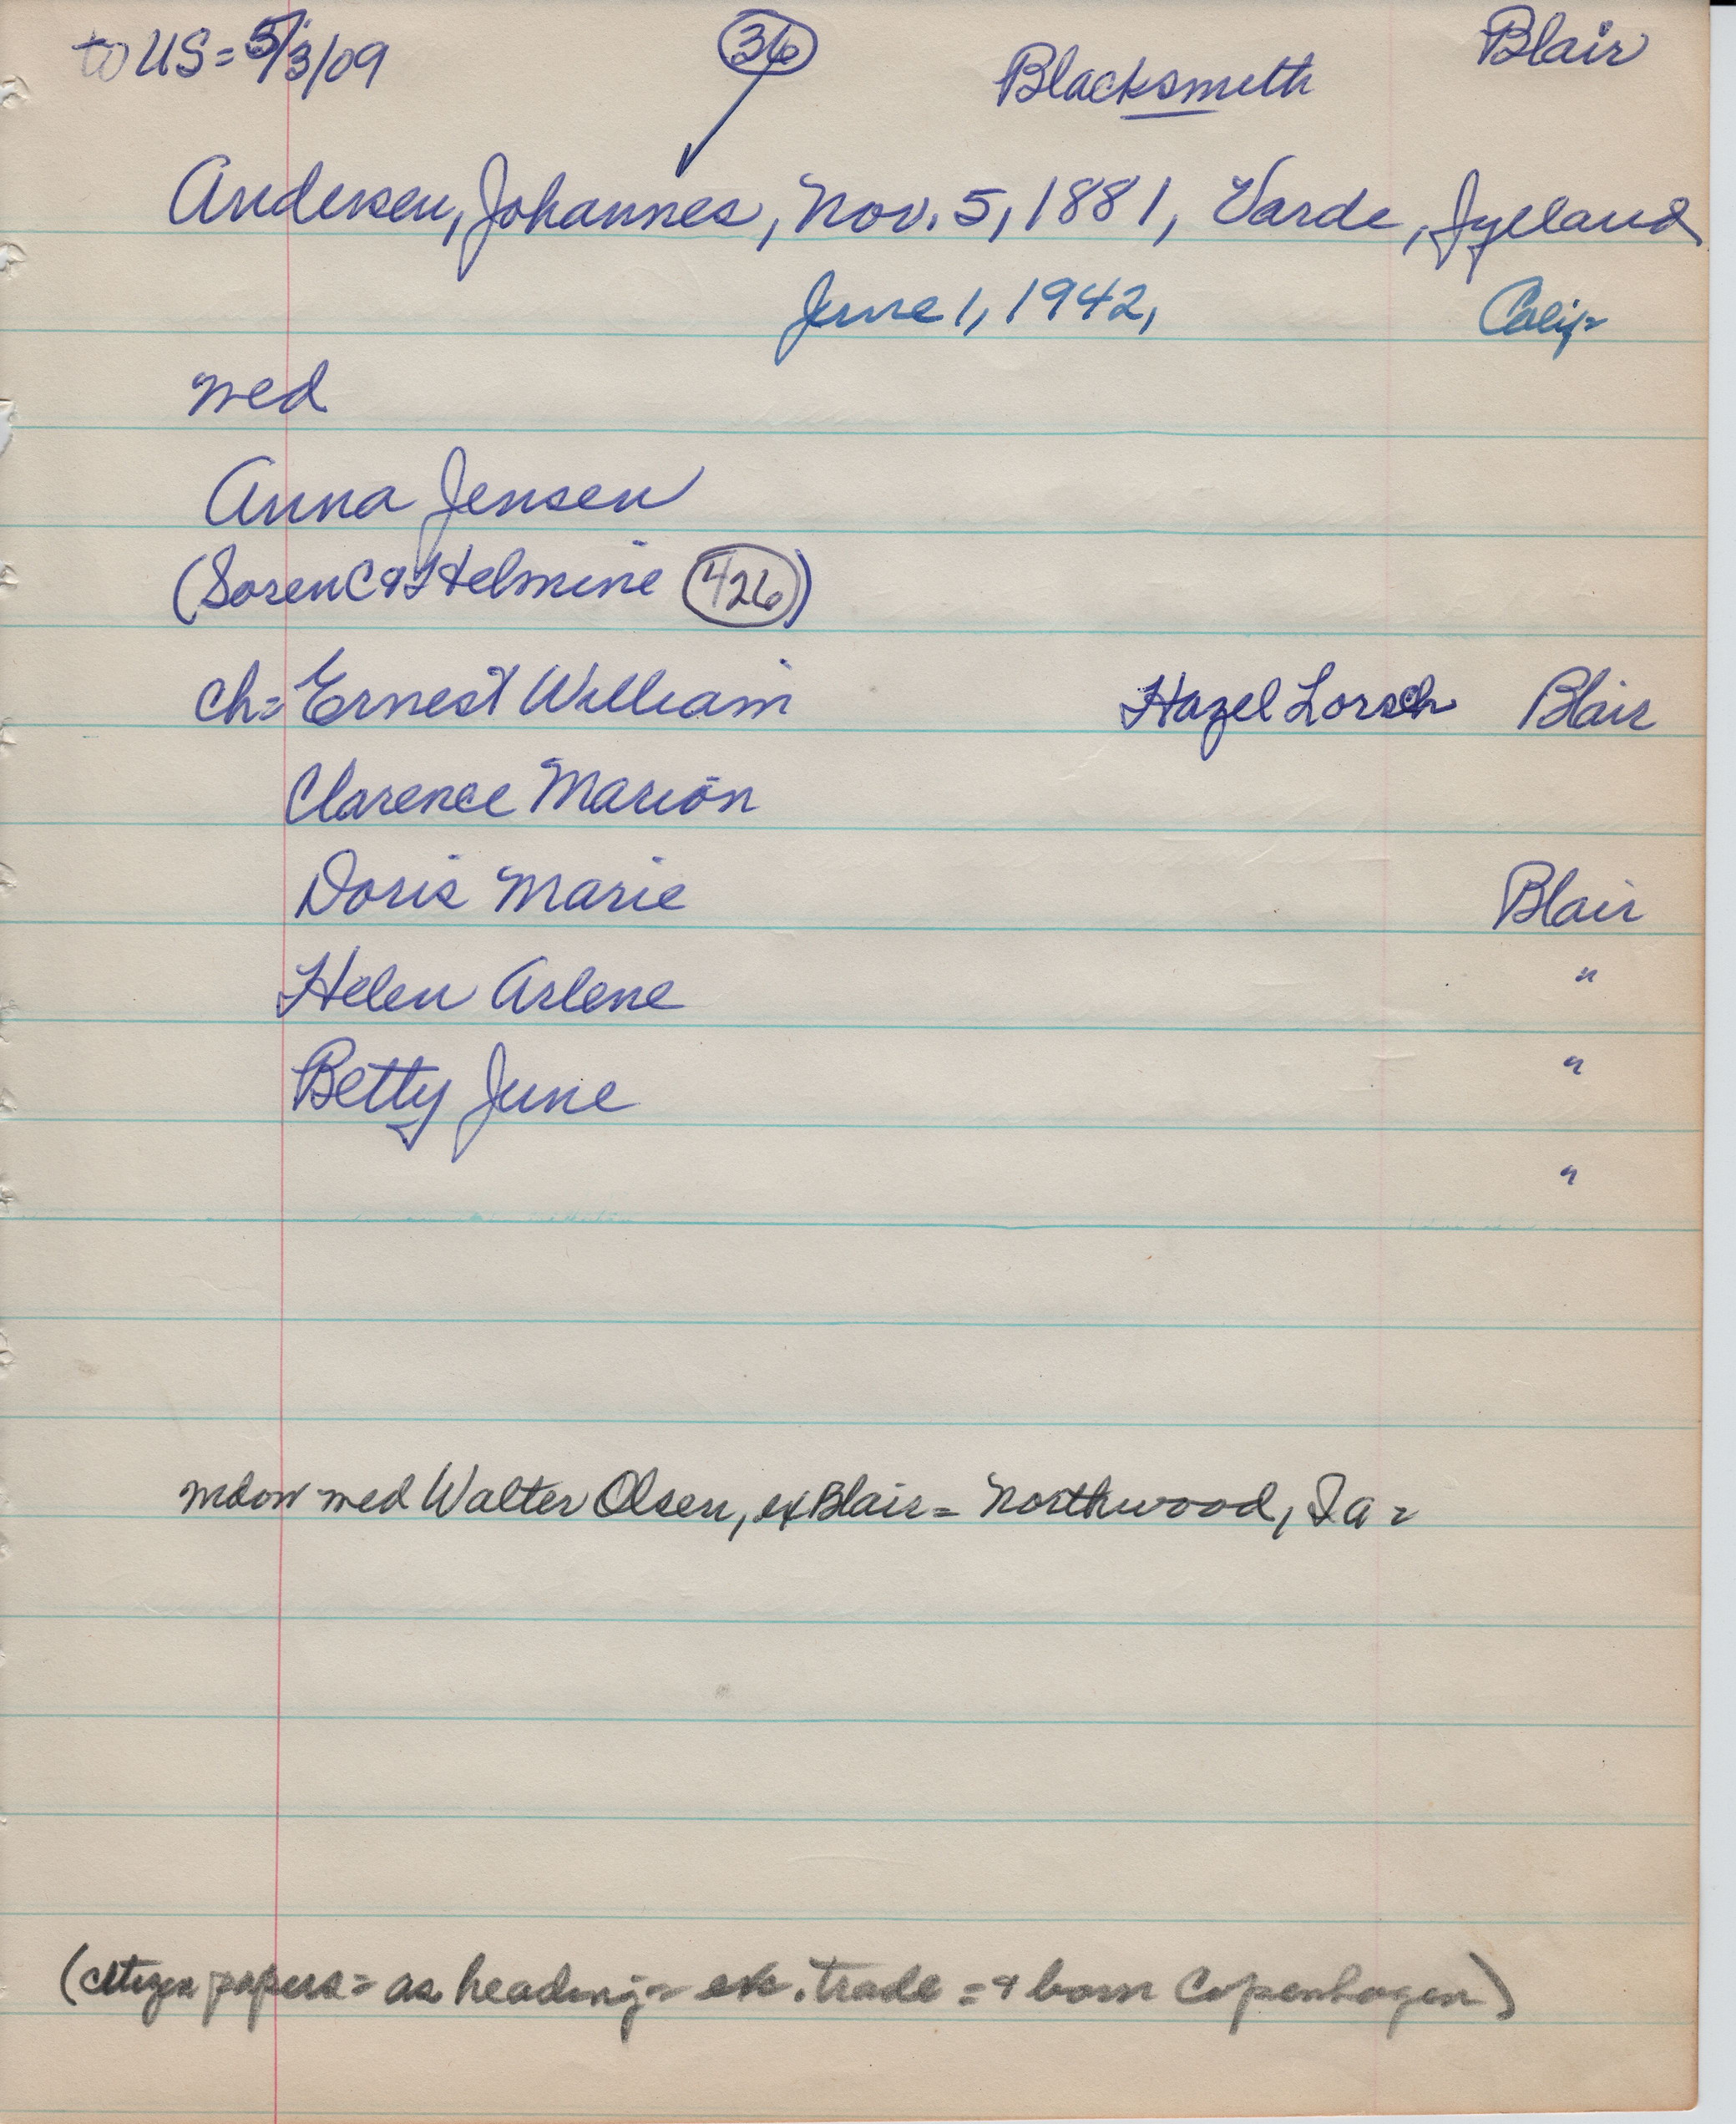 to US = 5/3/09
36
Blacksmith
Blair
Andersen, Johannes, Nov. 5, 1881, Varde, Jylland
June 1, 1942, Calif=
med
Anna Jensen
(Soren C & Helmine 426)
ch = Ernest William Hazel Lorsch Blair
Clarence Marion
Doris Marie Blair
Helen Arlene "
Betty June "
"
med Walter Olsen, ex Blair = Northwood, Ia =
(citizen papers = as heading = ex. trade = & born Copenhagen)